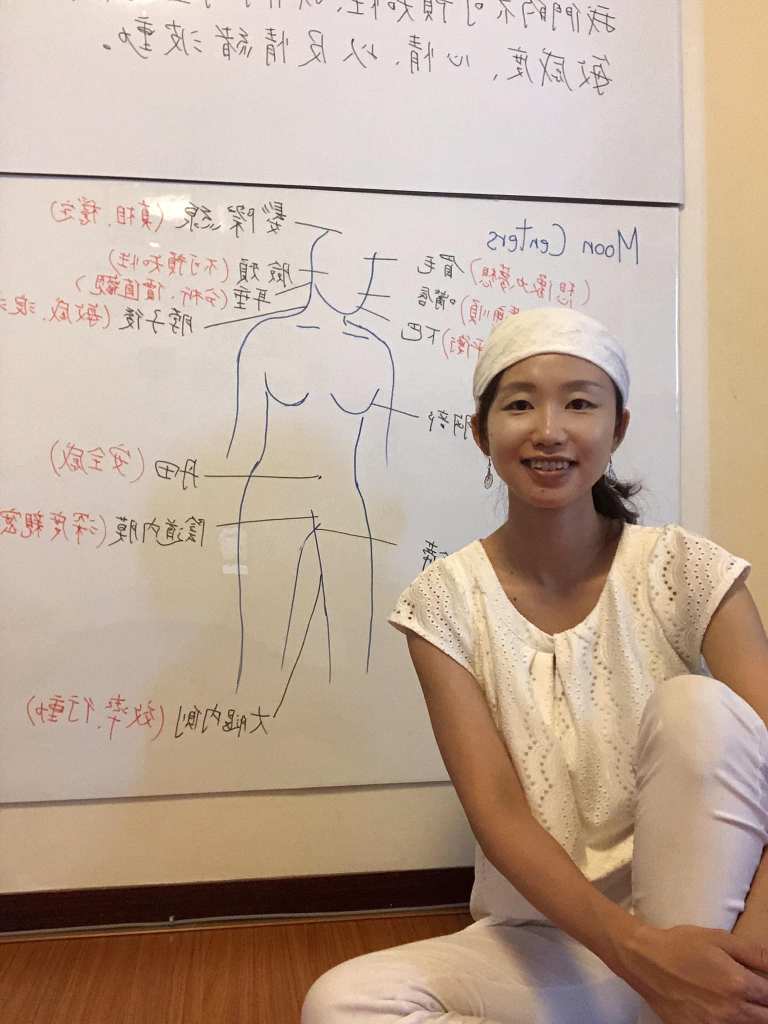 我們的不可預知性、
敏感度、心情、以及情緒波動。
Moon Centers
眉毛
嘴唇
平衡) 下巴
髮際線 (真相、穩定)
臉頰 (不可預知性)
耳垂 (分析、價值觀)
脖子後 (敏感、浪
丹田 (安全感)
陰道內膜 (深度親密
大腿內側 (效率、行動)